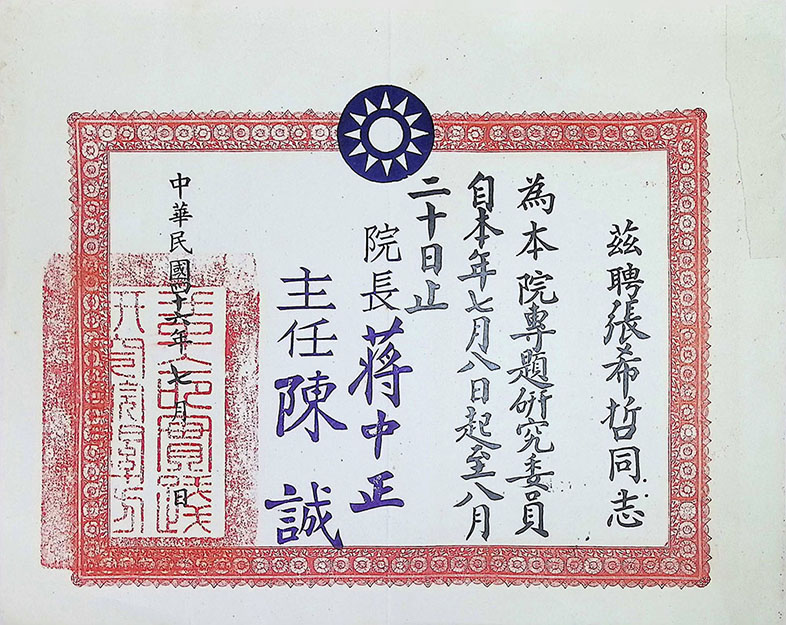 茲聘張希哲同志
為本院專題研究委員
自本年七月八日起至八月
二十日止
院長蔣中正
主任陳誠
中華民國四十六年七月 日